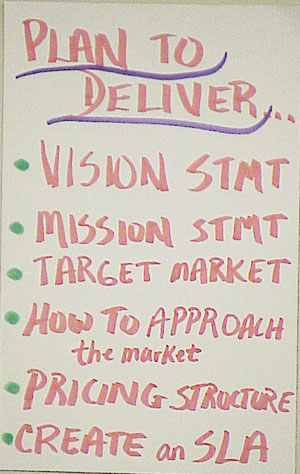 PLAN TO
DELIVER...
• VISION STMT
• MISSION STMT
• TARGET MARKET
• HOW TO APPROACH
the market
• PRICING STRUCTURE
• CREATE an SLA